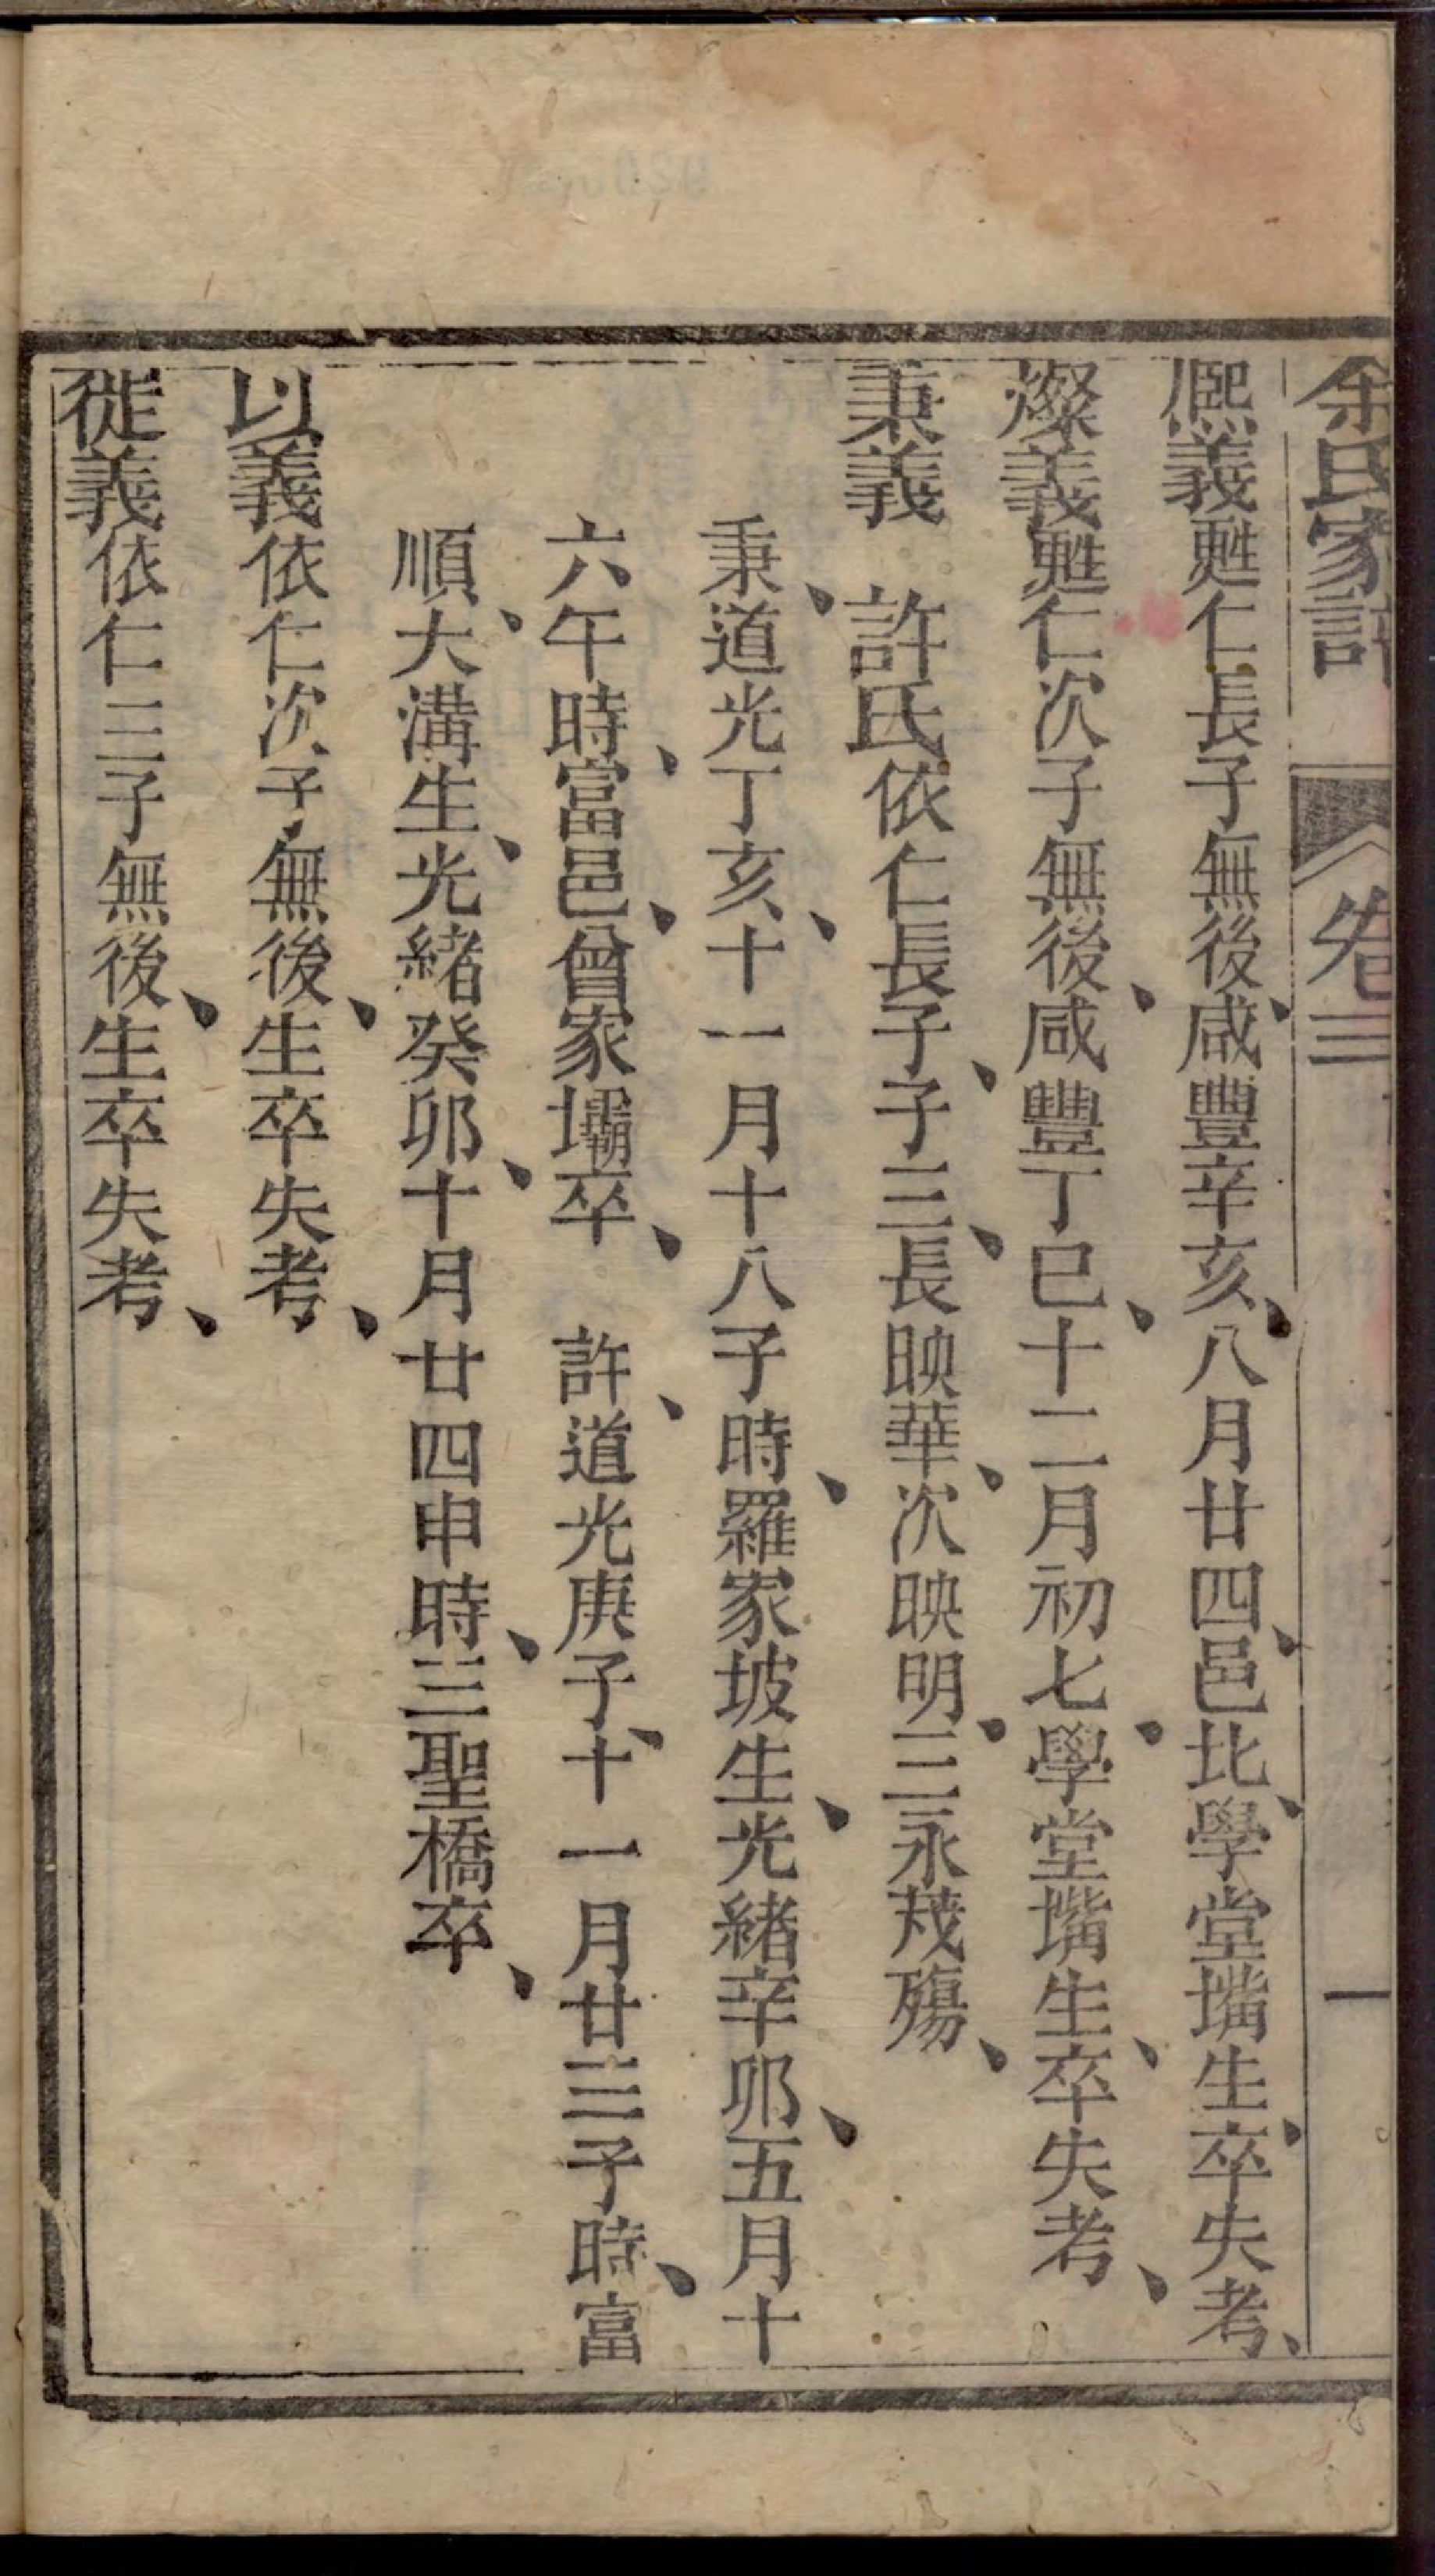 余氏家譜 卷三 一
熙義甦仁長子無後、咸豐辛亥、八月廿四、邑北、學堂嘴生、卒失考、
燦義甦仁次子無後、咸豐丁巳、十二月初七、學堂嘴生、卒失考、
秉義 許氏依仁長子、子三、長映華、次映明、三永茂殤、
秉、道光丁亥、十一月十八子時、羅家坡生、光緒辛卯、五月十
六午時、富邑、曾家壩卒、 許、道光庚子、十一月廿三子時、富
順、大溝生、光緒癸卯、十月廿四申時、三聖橋卒、
以義依仁次子無後、生卒失考、
徙義依仁三子無後、生卒失考、